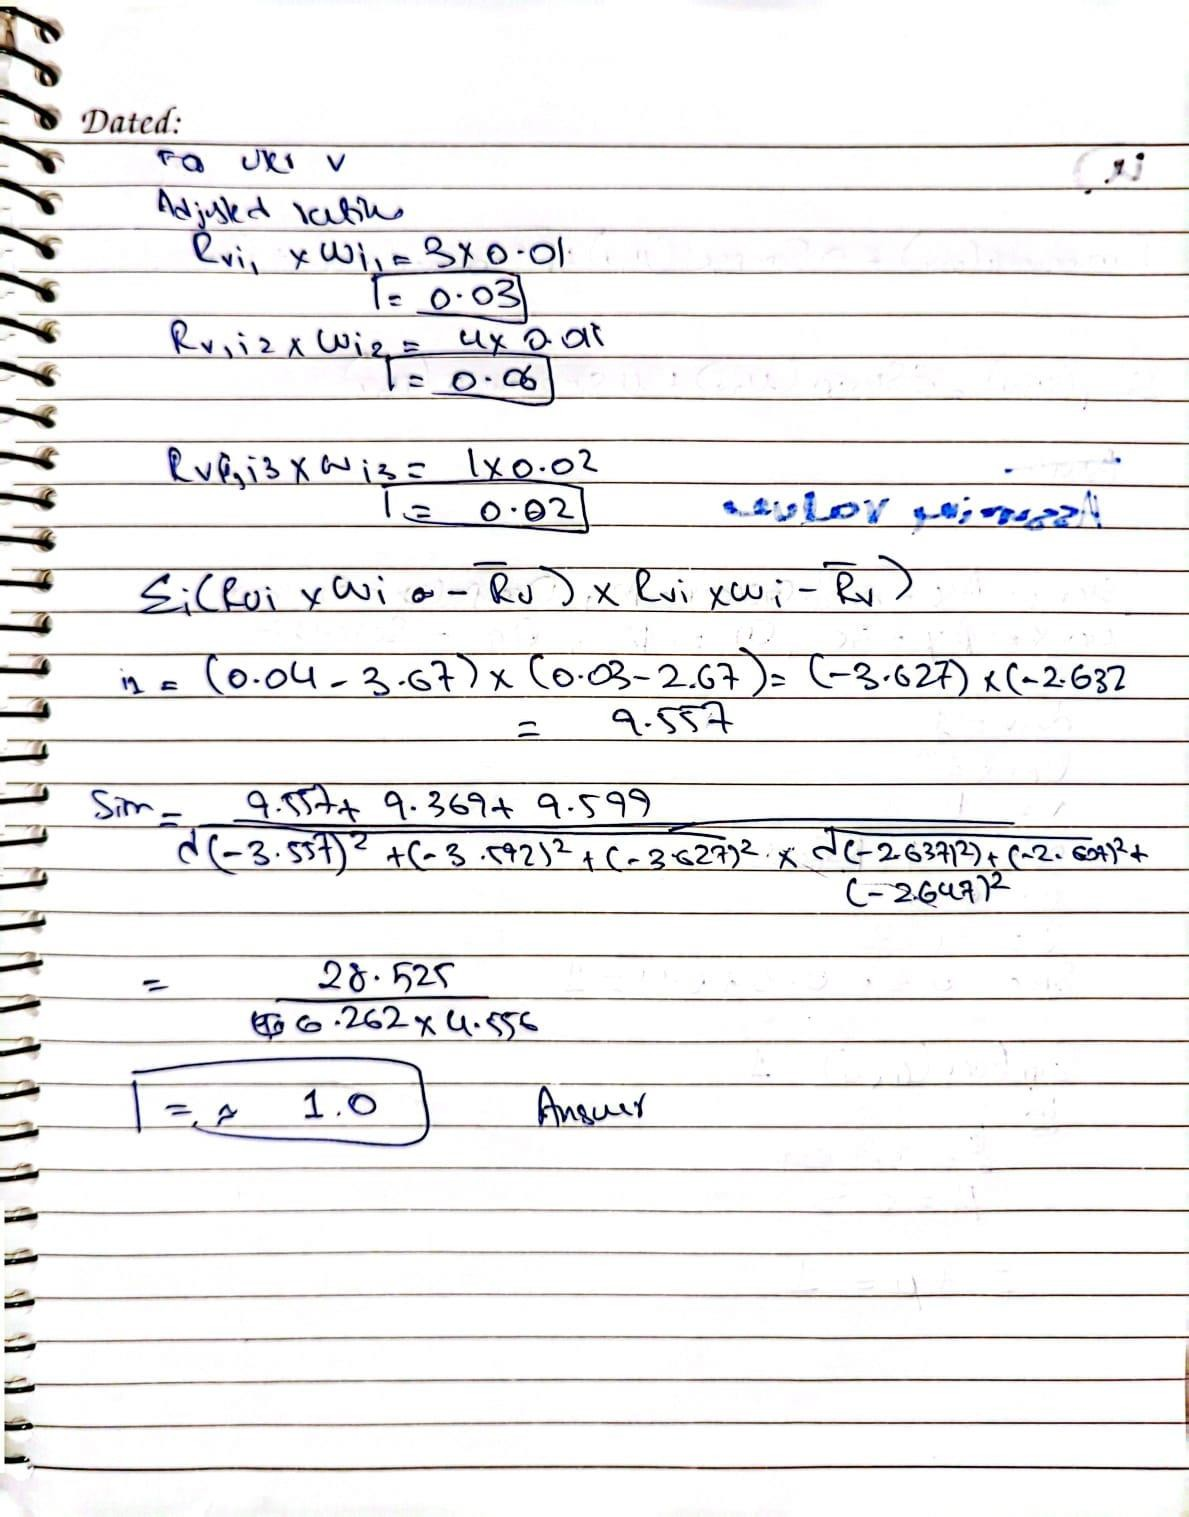 Dated:
user V
Adjusted rating
Rvi, x Wi, = 3x0.01
= 0.03
Rv,i2 x Wi2 = 4x 0.015
= 0.06
Rv,i3 x Wi3 = 1x0.02
= 0.02
Assuming Values
Σi(Rui x Wi - R̅u) x Rvi x wi - R̅v)
i1 = (0.04 - 3.67) x (0.03-2.67) = (-3.627) x (-2.637
= 9.557
Sim = 9.557+ 9.369+ 9.599
√(-3.557)² + (-3.592)² + (-3.627)² x √(-2.637)2) + (-2.607)² +
(-2.647)²
= 28.525
6.262 x 4.556
= ≈ 1.0 Answer